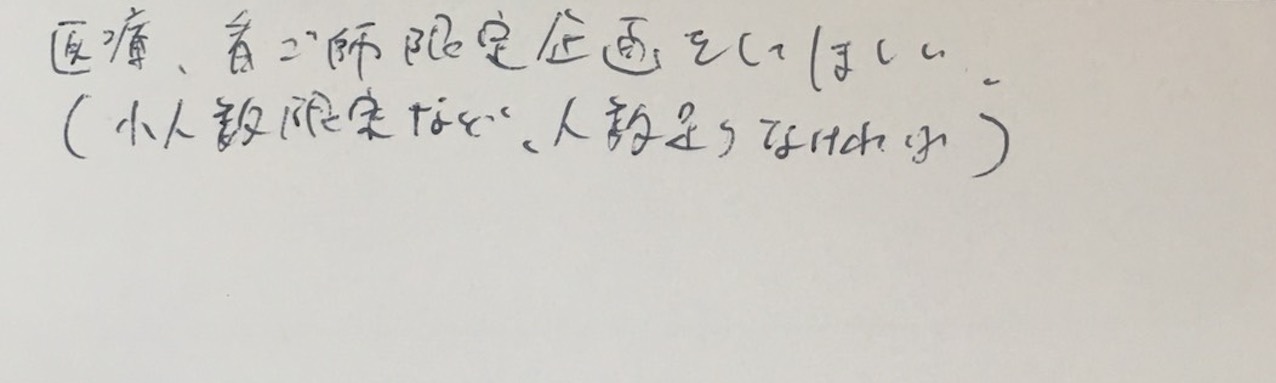 医療、看ご師限定企画をしてほしい。
(小人数限定など、人数足りなければ)